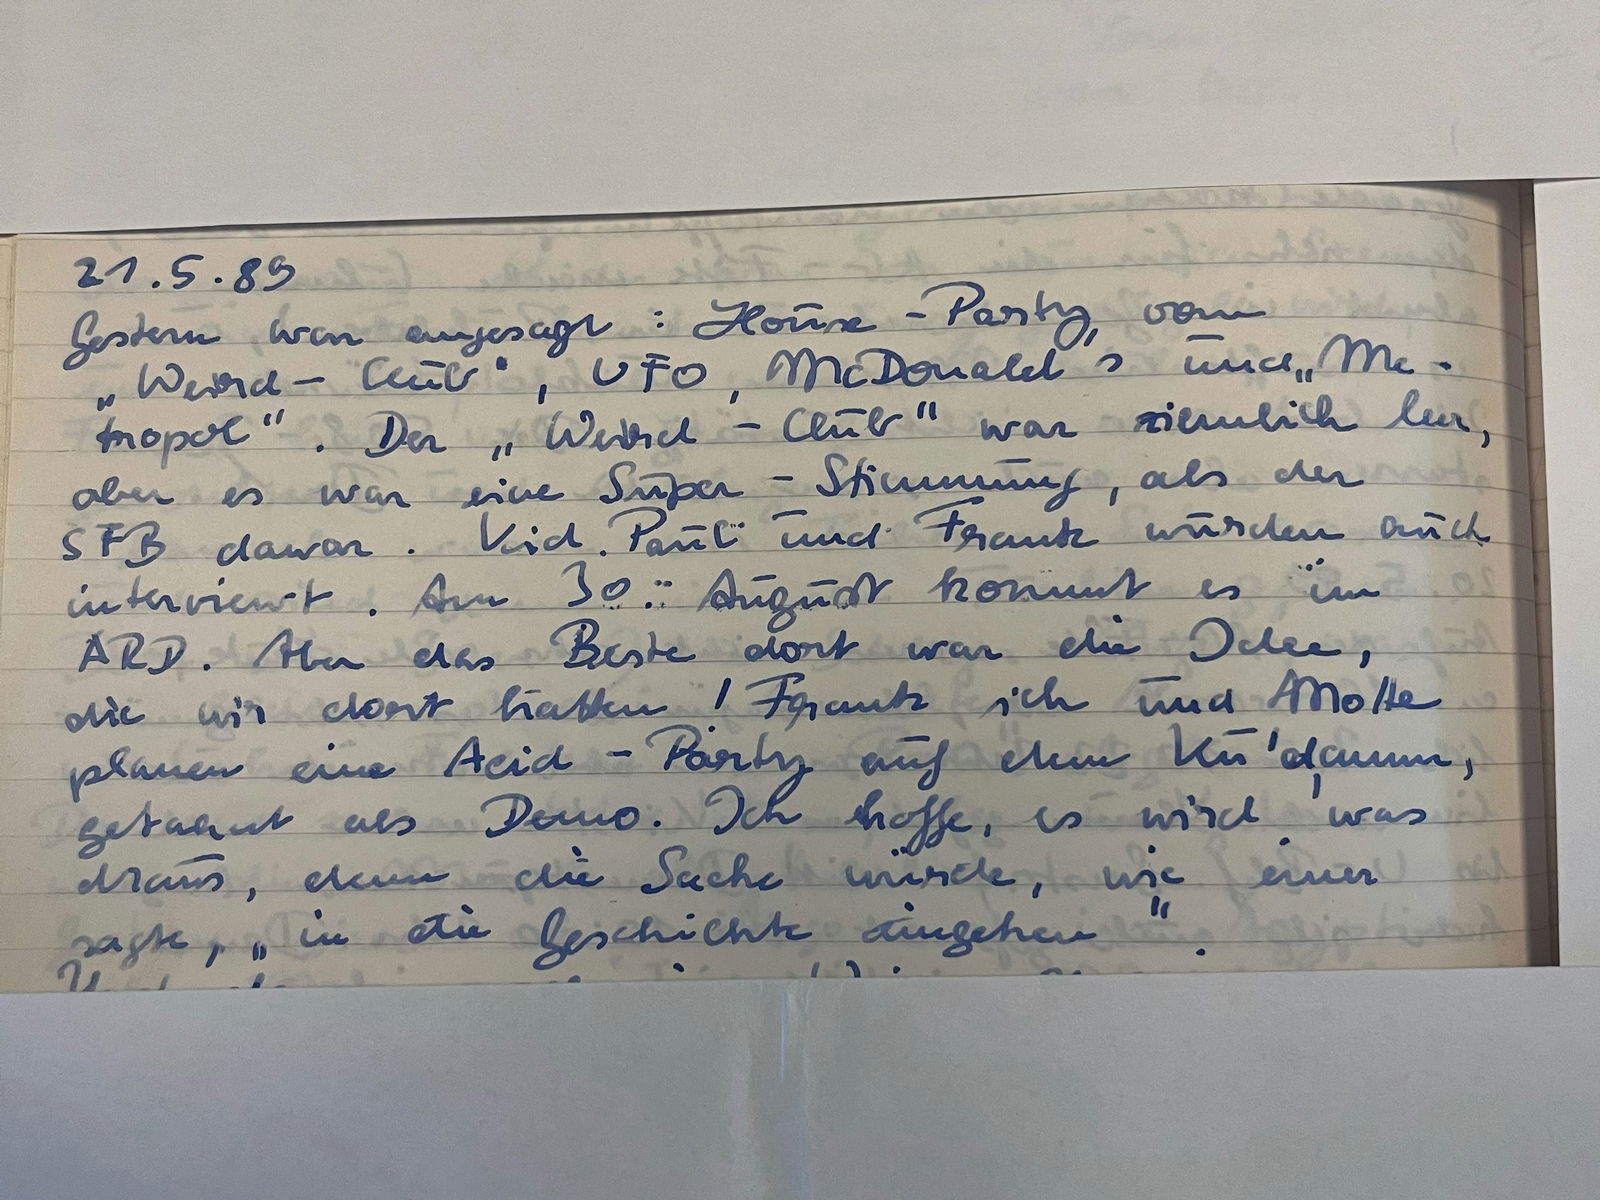 21.5.89
Gestern war angesagt: House-Party, vom
„Weird-Club", UFO, McDonald's und „Me-
tropol". Der „Weird-Club" war ziemlich leer,
aber es war eine Super-Stimmung, als der
SFB dawar. Kid Paul und Frank wurden auch
interviewt. Am 30. August kommt es im
ARD. Aber das Beste dort war die Idee,
die wir dort hatten! Frank ich und Motte
planen eine Acid-Party auf dem Ku'damm,
getarnt als Demo. Ich hoffe, es wird was
draus, denn die Sache würde, wie einer
sagte, „in die Geschichte eingehen".